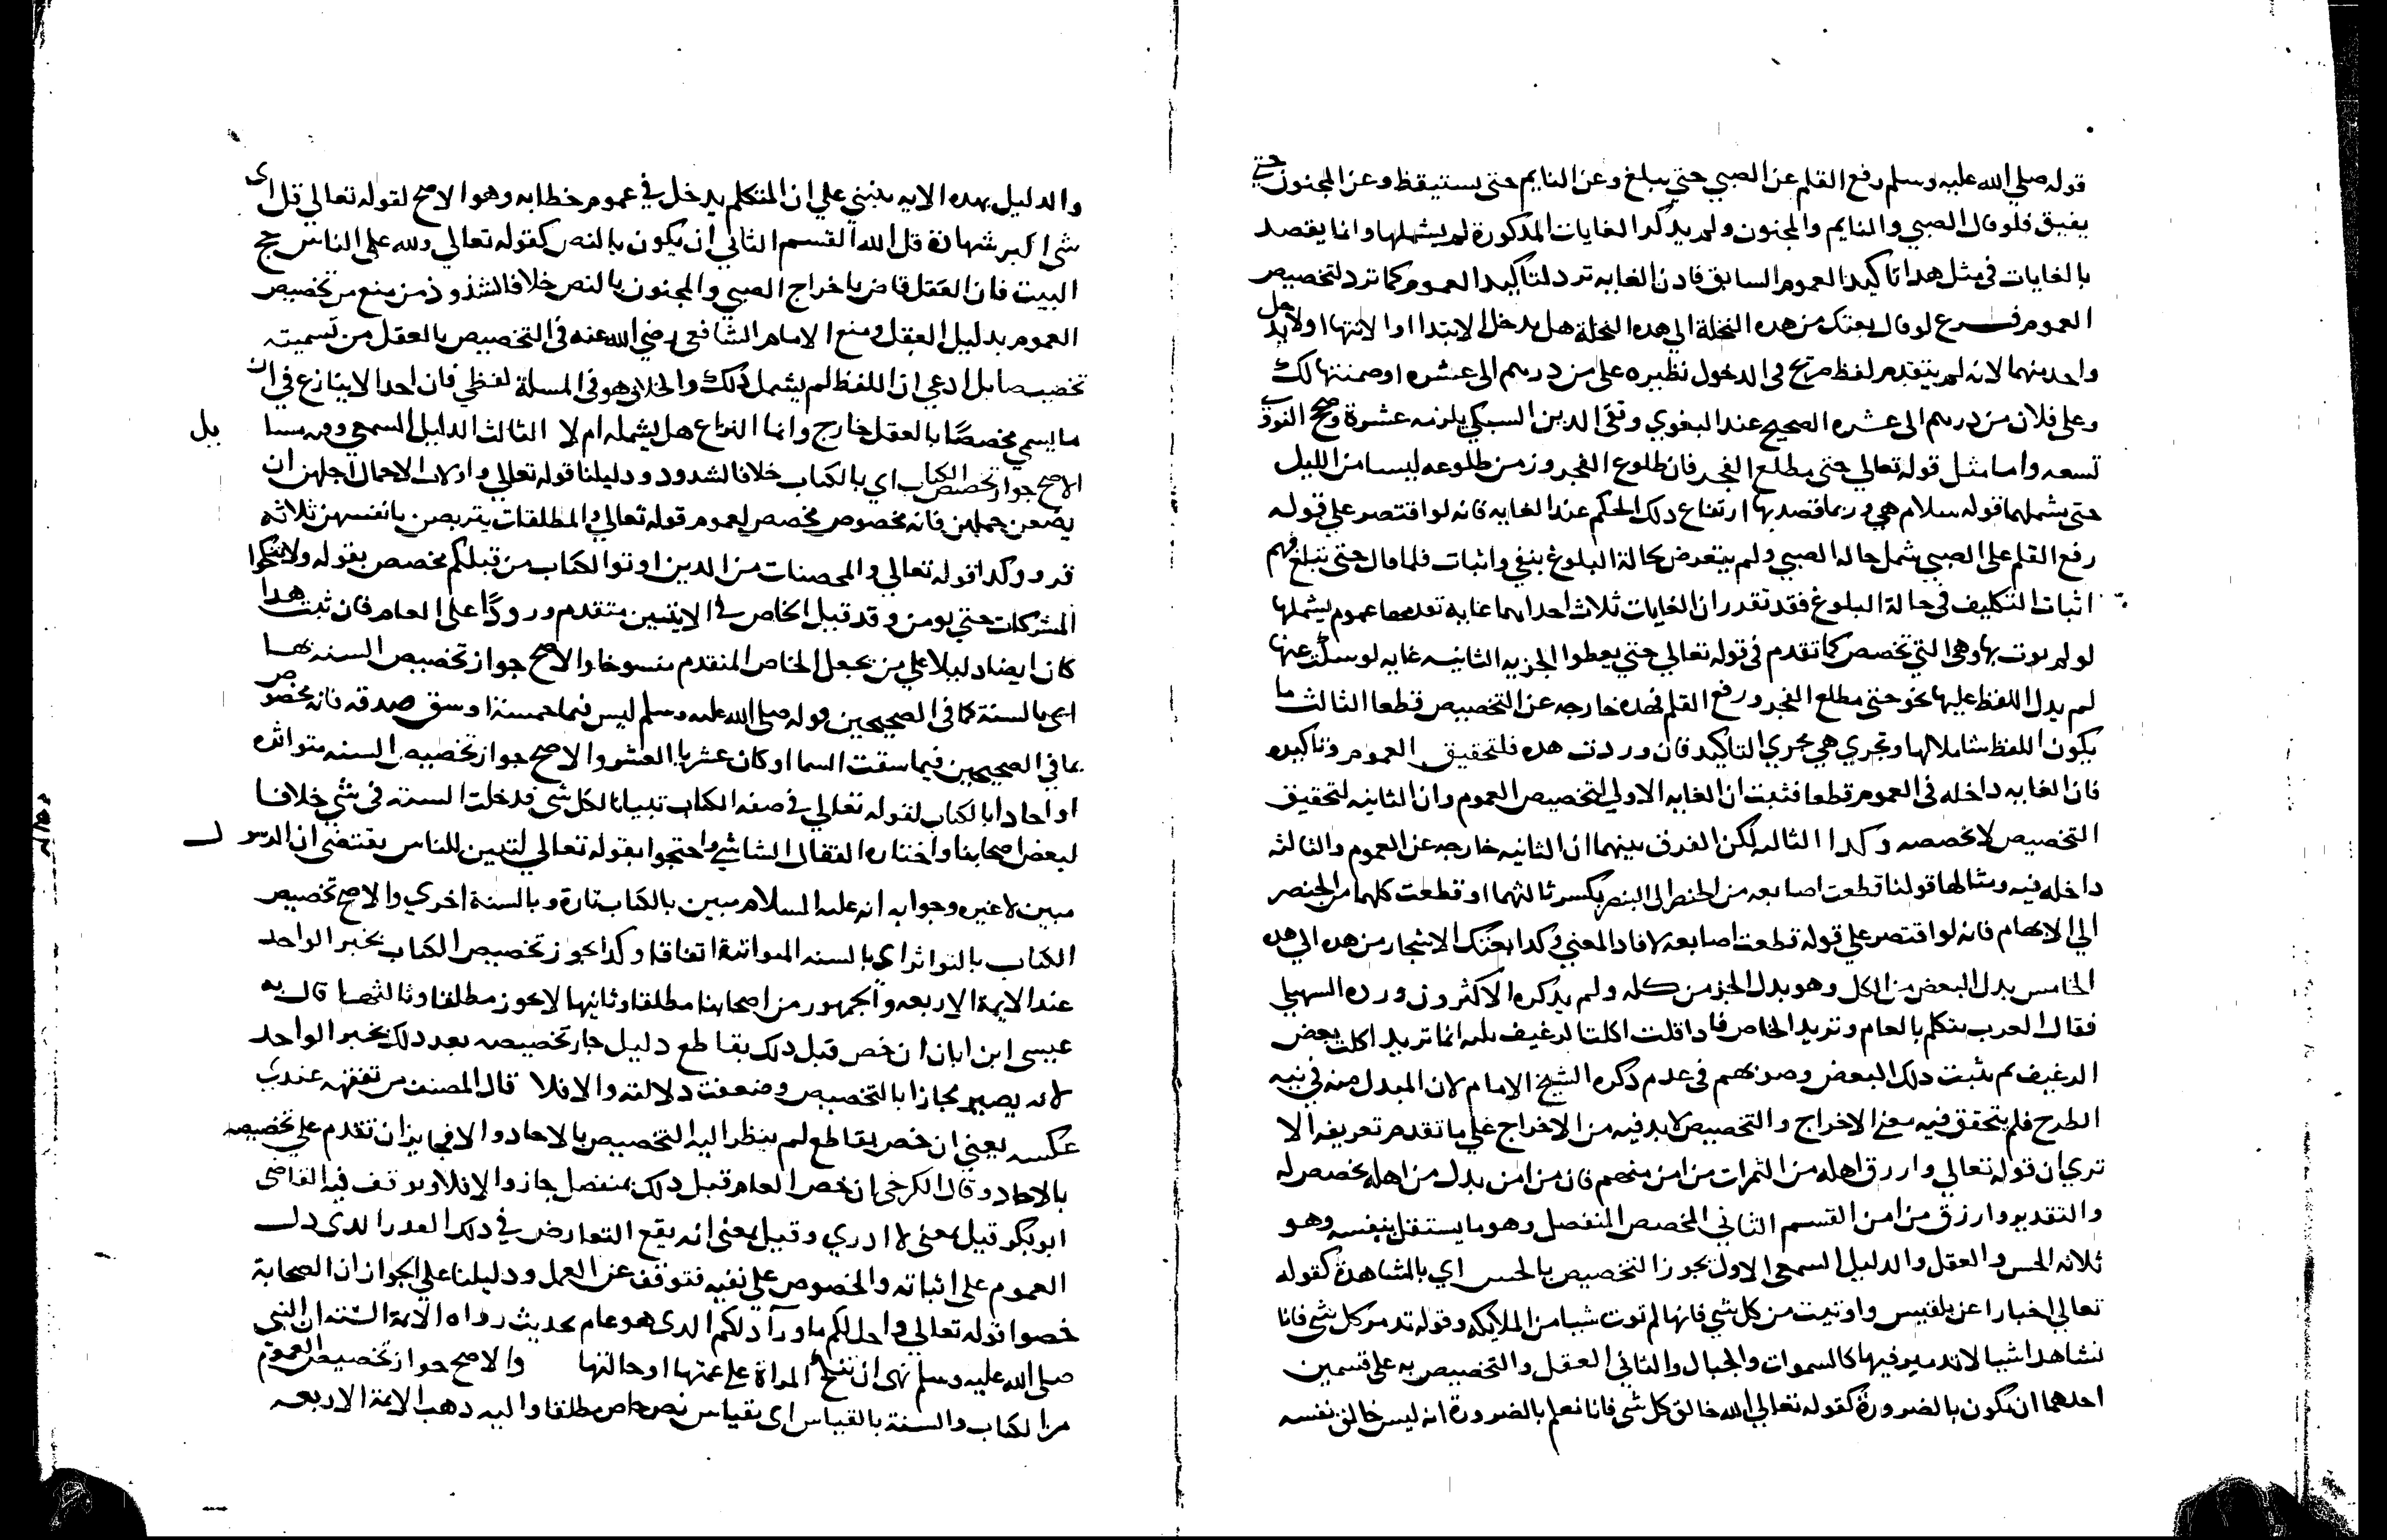 قوله صلي الله عليه وسلم رفع القلم عن الصبي حتي يبلغ وعن النايم حتي يستيقظ وعن المجنون حتي
يفيق فلو قال الصبي والنايم والمجنون ولم يدكر الغايات المدكورة لم يشملها وانما يقصد
بالغايات في مثل هدا تاكيد العموم السابق فادن الغايه ترد لتاكيد العموم كما ترد لتخصيص
العموم فرع لو قال بعتك من هده النخلة الي هده النخلة هل يدخل الابتدا او الانتها او لا يدخل
واحد منهما لانه لم يتقدم لفظ صريح في الدخول نظيره علي من درهم الي عشره او ضمنتها لك
وعلي فلان من درهم الي عشره الصحيح عند البغوي وتقي الدين السبكي يلزمه عشرة وصحح النووي
تسعه واما مثل قوله تعالي حتي مطلع الفجر فان طلوع الفجر وزمن طلوعه ليسا من الليل
حتي يشملهما قوله سلام هي وربما قصد بها ارتفاع دلك الحكم عند الغايه فانه لو اقتصر علي قوله
رفع القلم علي الصبي شمل حاله الصبي ولم يتعرض لحالة البلوغ بنفي واثبات فلما قال حتي يبلغ فهم
اثبات التكليف في حالة البلوغ فقد تقرر ان الغايات ثلاث احداهما غاية تقدمها عموم يشملها
لو لم يوت بها وهي التي تخصص كما تقدم في قوله تعالي حتي يعطوا الجزيه الثانيه غايه لو سكت عنها
لم يدل اللفظ عليها نحو حتي مطلع الفجر ورفع القلم فهده خارجه عن التخصيص قطعا الثالث ما
يكون اللفظ شاملا لها وتجري هي مجري التاكيد فان وردت هده فلتحقيق العموم وتاكيده
فان الغايه داخله في العموم قطعا فثبت ان الغايه الاولي لتخصيص العموم وان الثانيه لتحقيق
التخصيص لا تخصصه وكدا الثالثه لكن الفرق بينهما ان الثانيه خارجه عن العموم والثالثه
داخله فيه ومثالها قولنا قطعت اصابعه من الخنصر الي البنصر بكسر ثالثهما او قطعت كلهما من الخنصر
الي الابهام فانه لو اقتصر علي قوله قطعت اصابعه لافاد المعني وكدا بعتك الاشجار من هده الي هده
الخامس بدل البعض من الكل وهو بدل الجز من كله ولم يدكره الاكثرون ورده السهيلي
فقال العرب يتكلم بالعام وتريد الخاص فادا قلت اكلت الرغيف ثلثه انما تريد اكلت بعض
الرغيف ثم بينت دلك البعض وصوبهم في عدم دكره الشيخ الامام لان المبدل منه في نيه
الطرح فلم يتحقق فيه معني الاخراج والتخصيص لا بد فيه من الاخراج علي ما تقدم تعريفه الا
تري ان قوله تعالي وارزق اهله من الثمرات من امن منهم فان من امن بدل من اهله مخصص له
والتقدير وارزق من امن القسم الثاني المخصص المنفصل وهو ما يستقل بنفسه وهو
ثلاثه الحس والعقل والدليل السمعي الاول يجوز التخصيص بالحس اي بالمشاهدة كقوله
تعالي اخبارا عن بلقيس واوتيت من كل شي فانها لم توت شيا من الملايكه وقوله تدمر كل شي فانا
نشاهد اشيا لا تدمير فيها كالسموات والجبال والثاني العقل والتخصيص به علي قسمين
احدهما ان يكون بالضرورة كقوله تعالي الله خالق كل شي فانا نعلم بالضرورة انه ليس خالق نفسه
والدليل بهده الايه ينبني علي ان المتكلم يدخل في عموم خطابه وهو الاصح لقوله تعالي قل اى
شي اكبر شهادة قل الله القسم الثاني ان يكون بالنص كقوله تعالي ولله علي الناس حج
البيت فان العقل قاض باخراج الصبي والمجنون بالنص خلافا لشذوذ من منع من تخصيص
العموم بدليل العقل ومنع الامام الشافعي رضي الله عنه في التخصيص بالعقل من تسميته
تخصيصا بل ادعي ان اللفظ لم يشمل دلك والخلاف هو في المسلة لفظي فان احدا لا ينازع في ان
ما يسمي مخصصا بالعقل خارج وانما النزاع هل يشمله ام لا الثالث الدليل السمعي وفيه مسا يل
الاصح جواز تخصيص الكتاب اي بالكتاب خلافا لشدود ودليلنا قوله تعالي واولات الاحمال اجلهن ان
يضعن حملهن فانه مخصوص مخصص لعموم قوله تعالي والمطلقات يتربصن بانفسهن ثلاثه
قرو وكدا قوله تعالي والمحصنات من الدين اوتوا الكتاب من قبلكم مخصص بقوله ولا تنكحوا
المشركات حتي يومن وقد قيل الخاص في الايتين متقدم ورودا علي العام فان ثبت هدا
كان ايضا دليلا علي من يجعل الخاص المتقدم منسوخا والاصح جواز تخصيص السنه بها
اي بالسنة كما في الصحيحين قوله صلي الله عليه وسلم ليس فيما خمسة اوسق صدقه فانه مخصوص
بما في الصحيحين فيما سقت السما او كان عثريا العشر والاصح جواز تخصيص السنه متواتره
او احادا بالكتاب لقوله تعالي في صفه الكتاب تبيانا لكل شي فدخلت السنه في شي خلافا
لبعض اصحابنا واختاره القفال الشاشي واحتجوا بقوله تعالي لتبين للناس يقتضي ان الرسول
مبين لا غيره وجوابه انه عليه السلام مبين بالكتاب تارة وبالسنة اخري والاصح تخصيص
الكتاب بالتواتر اي بالسنه المتواترة اتفاقا وكدا يجوز تخصيص الكتاب بخبر الواحد
عند الايمة الاربعه والجمهور من اصحابنا مطلقا وثانيها لا يجوز مطلقا وثالثها قال به
عيسى ابن ابان ان خص قبل دلك بقاطع دليل جاز تخصيصه بعد دلك بخبر الواحد
لانه يصير مجازا بالتخصيص وضعفت دلالته والا فلا قال المصنف من تفقهه عندي
عكسه يعني ان خص بقاطع لم ينظر اليه التخصيص بالاحاد والا في يزان تقدم علي تخصيصه
بالاحاد وقال الكرخي ان خص العام قبل دلك بمنفصل جاز والا فلا وتوقف فيه القاضي
ابوبكر قيل بمعني لا ادري وقيل بمعني انه يقع التعارض في دلك القدر الدى دل
العموم علي اثباته والخصوص علي نفيه فتوقف عن العمل ودليلنا علي الجواز ان الصحابة
خصوا قوله تعالي واحل لكم ما ورآ دلكم الدى هو عام بحديث رواه الايمة الستة ان النبي
صلي الله عليه وسلم نهى ان تنكح المراة علي عمتها او خالتها والاصح جواز تخصيص العموم
من الكتاب والسنة بالقياس اى بقياس نص خاص مطلقا واليه دهب الايمة الاربعه